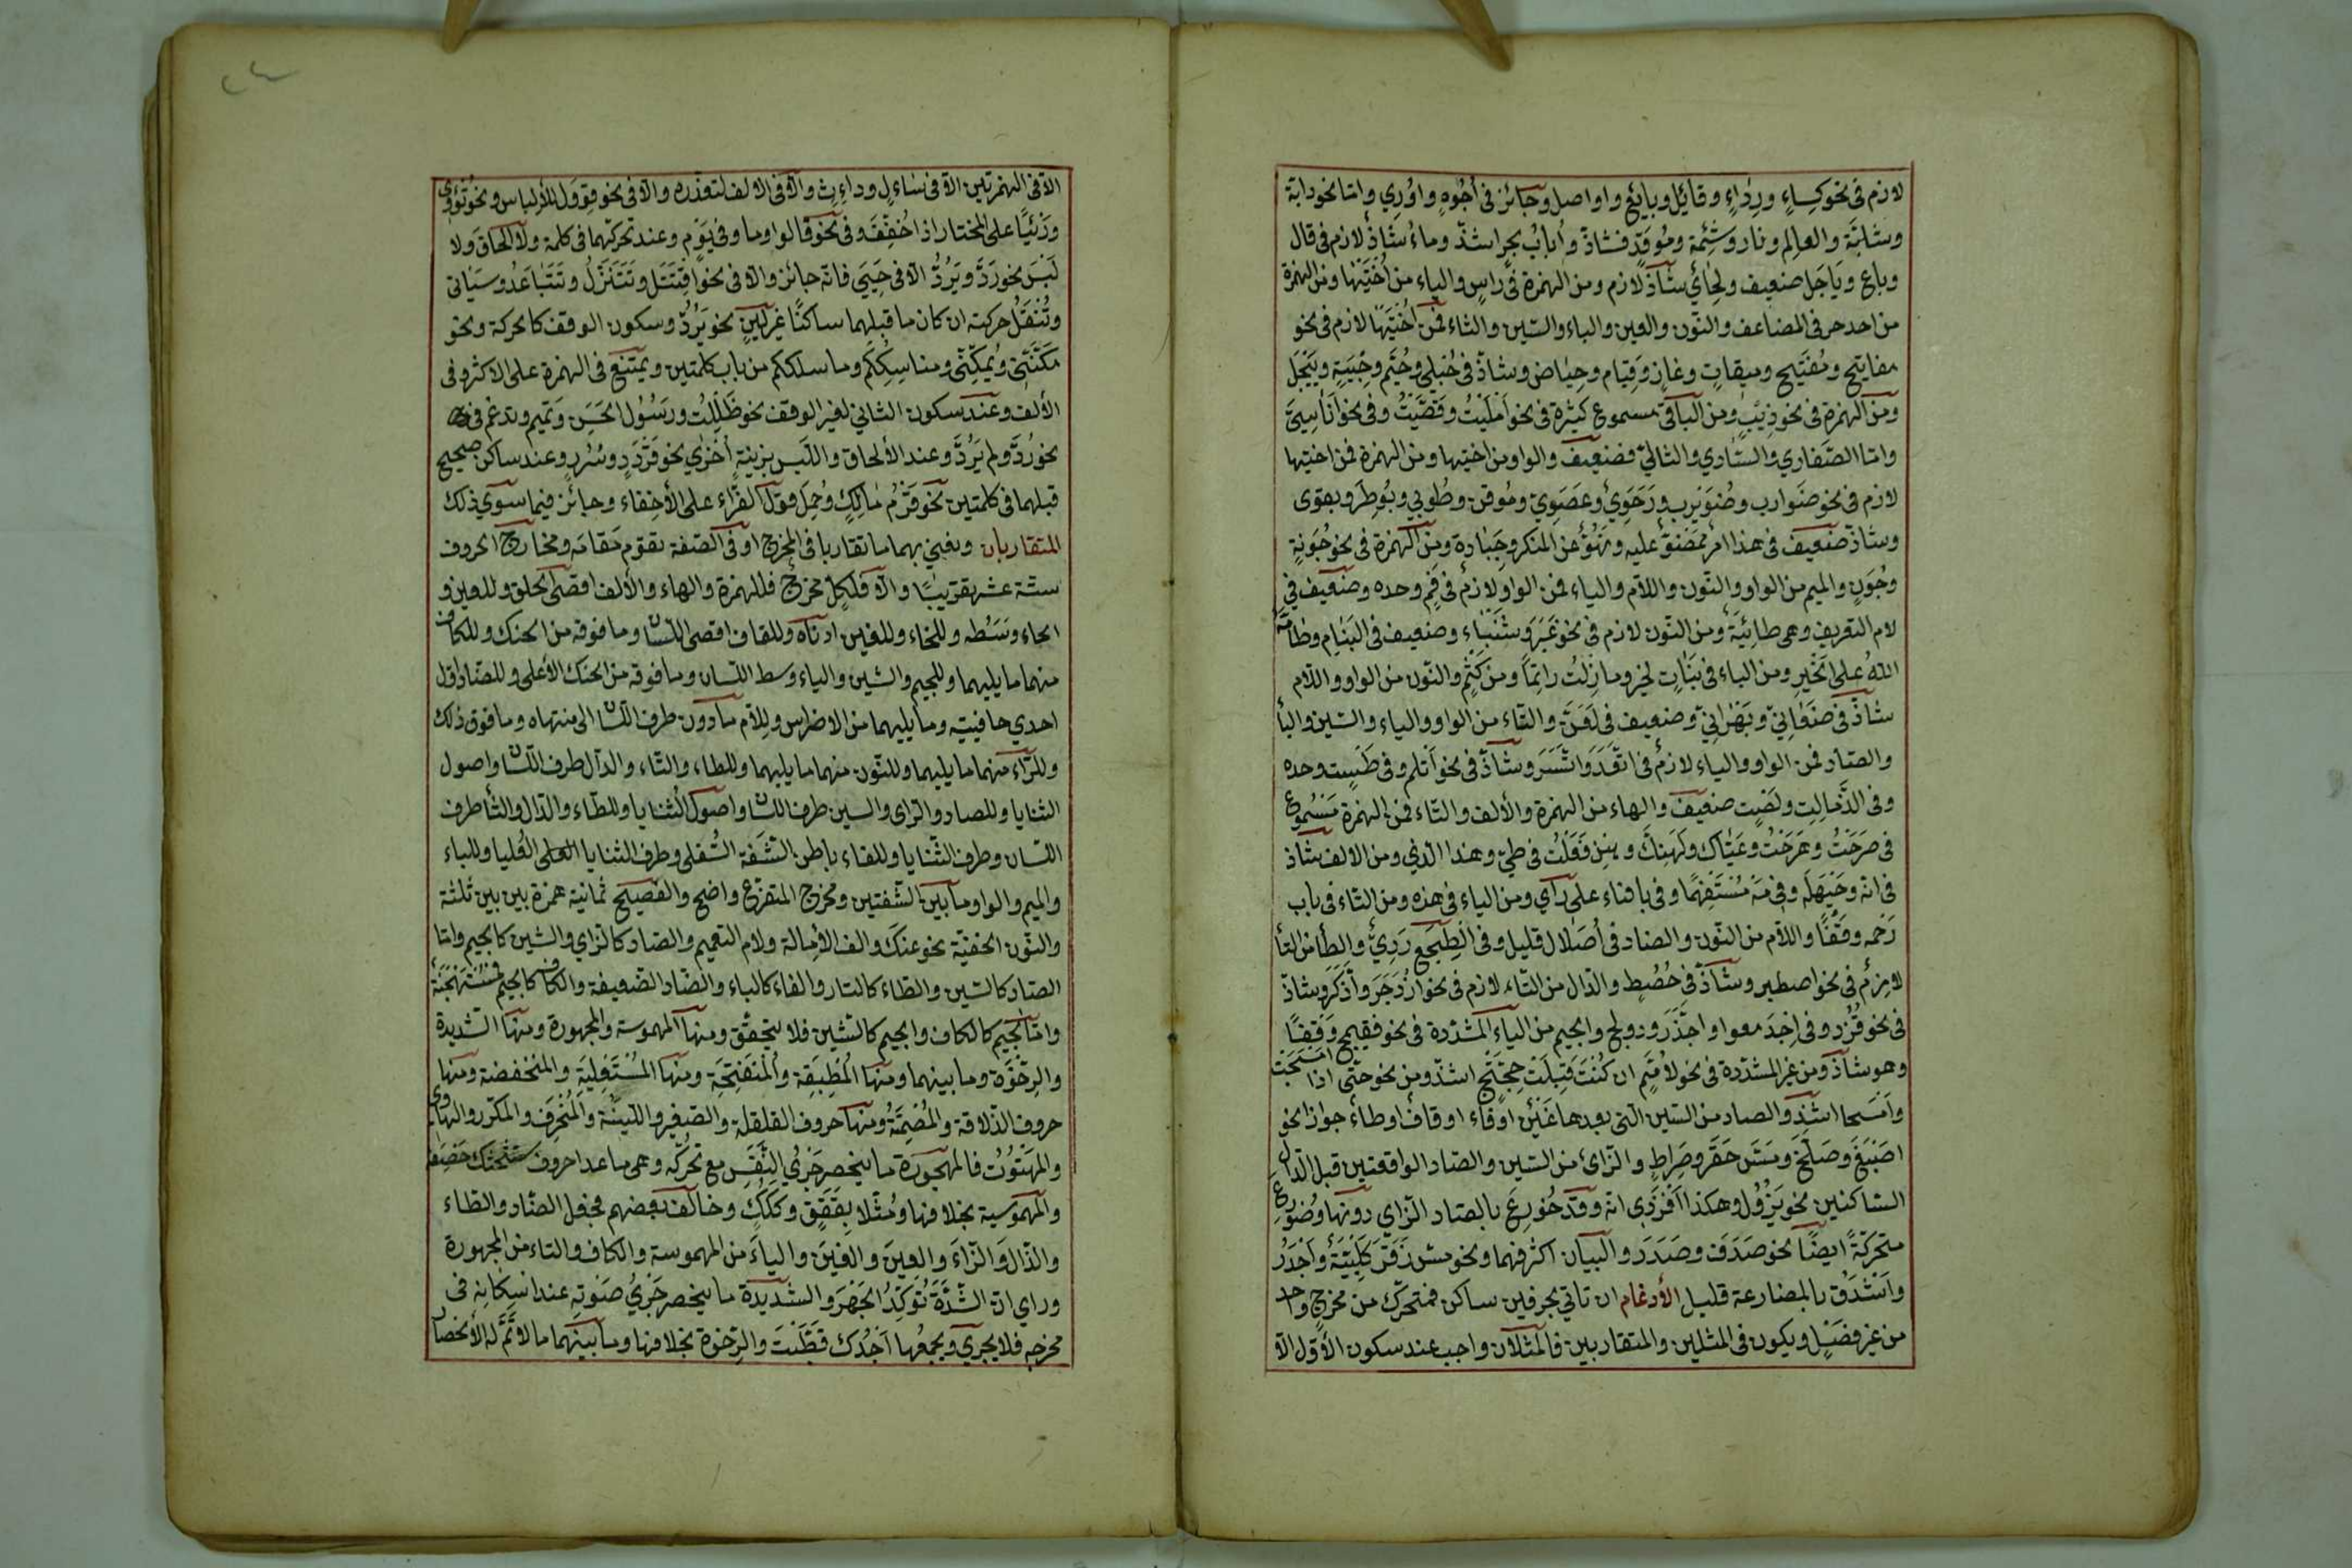 لازم في نحو كِساءٍ ورِداءٍ وقائِل وبايع واواصل وجائز في أجُوهٍ واوُرِي وامّا نحو دابّة
وشابّة والعالِم ونار وشِئمة ومُوقدٍ فشاذّ وأبابُ بحرٍ اشذّ وماءُ شاذّ لازم في قال
وباع ويَاجَل ضعيف ولِحائي شاذّ لازم ومن الهمزة في راسٍ والياء من اُختَيْها ومن الهمزة
من احد حرفي المضاعف والنّون والعين والباء والسّين والثاء فمن اُختَيْها لازم في نحو
مفاتيح ومُفَيتيح وميقاتٍ وغازٍ وقِيام وحِيٰاض وشاذّ في حُبْلي وصُيّم وصِبْيَةٍ ويَيْجَل
ومن الهمزة في نحو ذِيبٍ ومن الباقي مسموع كثيرة في نحو اَمْلَيْتُ وقَصَّيْتُ وفي نحو اَناسِيّ
وامّا الضّفادي والسّادي والثالي فضعيف والواو من اختيها ومن الهمزة فمن اختيها
لازم في نحو ضَوارب وضُوَيْرِب ورَحَوِيّ وعَصَوِيّ ومُوقن وطُوبي وبُوطِرَ وبقوى
وشاذّ ضعيف في هذا أمرٌ مَمْضُوّ عليه ونَهُوٌّ عن المنكر وجِباوة ومن الهمزة في نحو جُونةٍ
وجُوَنٍ والميم من الواو والنّون واللّام والياء فمن الواو لازم في فَمٍ وحده وضعيف في
لام التعريف وهي طائيّة ومن النّون لازم في نحو عَنْبَر وشَنْبَاء وضعيف في البَنام وطامَهُ
اللهُ على الخَيْرِ ومن الباء في بَنَاتِ مَخرٍ وما زِلْتُ راتِماً ومن كَثَمٍ والنّون من الواو واللّام
شاذّ في صَنْعَانِيّ وبَهْرانيّ وضعيف في لَعَنَّ والتّاء من الواو والياء والسّين والباء
والصّاد فمن الواو والياء لازم في اتَّعَدَ واتَّسَرَ وشاذّ في نحو اَتْلَج وفي طَسْتٍ وحده
وفي الذَّعالِتِ ولَصْتٍ ضعيف والهاء من الهمزة والألف والتّاء فمن الهمزة مَسْمُوع
في هَرَحْتُ وهَرَقْتُ وهيّاك ولَهِنّكَ وهِن فَعَلْتُ في طيّ وهذا الّذي ومن الالف شاذّ
في انه وحَيّهَلَه وفي مَهْ مُسْتَفْهِمًا وفي يا هناه على رأي ومن الياء في هذه ومن التّاء في باب
رَحْمه وَقْفًا واللّام من النّون والضاد في اُصَيْلال قليل وفي الْطَجَعَ رَدِيّ والطاء من التاء
لازمٌ في نحو اصطبر وشاذّ في حُصْطٍ والدّال من التّاء لازم في نحو اِزْدَجَرَ وادّكَرَ وشاذّ
في نحو فُزْد وفي اِجْدَمَعوا واجْدَزَ ودولج والجيم من الياء المشدّدة في نحو فقيمج وَقْفًا
وهو شاذّ ومن غير المشدّدة في نحو لا هُمَّ ان كُنْتَ قَبِلْتَ حِجَّتِج اشذّ ومن نحو حتّى اذا امْسَجَتْ
واَمْسَجا اشَذّ والصاد من السّين الّتي بعدها غَيْن او خاء او قاف او طاء جوازا نحو
اصْبَغَ وصَلَخَ ومَسَّ صَقَرَ وصِراطٍ والزّاي من السّين والصّاد الواقعتين قبل الدّال
السّاكنين نحو يَزْدُل وهكذا فَزْدِى انه وقد ضُورِعَ بالصّاد الزّاي دونها وضُورِعَ
متحركةً ايضًا نحو صَدَقَ وصَدَرَ والبيان اكثر فيهما ونحو مسّ زَقَرَ كَلْبِيّة واَجْدَرُ
واَشْدَقُ بالمضارعة قليل الأدغام ان تاتي بحرفين ساكن فمتحرّك من مخرج واحد
من غير فَصْلٍ ويكون في المثلين والمتقاربين فالمثلان واجب عند سكون الأوّل الّا
الّا في الهمزتين الّا في سَاءلٍ وداءِثٍ والّا في الالف لتعذّره والّا في نحو قووِل للألباس ونحو تُؤوِي
ورِيْيًا على المختار اذا خُفِّفَ وفي نحو قالوا وما وفي يَوْمٍ وعند تحركهما في كلمة ولا الحاق ولا
لَبْسَ نحو رَدَّ ويَرُدُّ الّا في حَيِيَ فانّه جائز والّا في نحو اقْتَتَل وتَتَنَزّلُ وتَتَبٰاعَدُ وسَيٰاتي
وتُنْقَلُ حركته ان كان ما قبلهما ساكنًا غير لِينٍ نحو يَرُدُّ وسكون الوقف كالحركة ونحو
مَكَّنَنِي ويُمَكِّنُنِي ومناسِكَكُم وما سلككم من باب كلمتين ويمتنع في الهمزة على الاكثر وفي
الألف وعند سكون الثاني لغير الوقف نحو ظَلِلْتُ ورَسُولُ الحَسَن وَتميم وتدغم في
نحو رُدَّ ولم يَرُدَّ وعند الألحاق واللّبس بزِنةٍ أخرٰي نحو قَرْدَدٍ وسُرُرٍ وعند ساكن صحيح
قبلهما في كلمتين نحو قَرْمُ مٰالِكٍ وحُمِلَ قول القرّاء على الأخفاء وجائز فيما سوي ذلك
المتقاربان ونعني بهما ما تقاربا في المخرج او في الصّفة تقوم مَقامَه ومخارج الحروف
ستّة عشر تقريبًا والّا فلكلٍ مخرج فللهمزة والهاء والألف اقصى الحلق وللعين و
الحاء وَسَطُه وللخاء وللغين ادناه وللقاف اقصى اللّسان وما فوقه من الحنك وللكاف
منهما ما يليهما وللجيم والشين والياء وسط اللّسان وما فوقه من الحنك الأعلى وللضّاد اوّل
احدي حافتيه وما يليهما من الاضراس وللّام ما دون طرف اللّسان الى منتهاه وما فوق ذلك
وللرّاء منهما ما يليهما وللنّون منهما ما يليهما وللطاء والتاء والدال طرف اللّسان واصول
الثنايا وللصاد والزاي والسين طرف اللسان واصول الثنايا وللظاء والذال والثاء طرف
اللّسان وطرف الثّنايا وللفاء باطن الشّفة السُّفلى وطرف الثنايا العُليا وللباء
والميم والواو ما بين الشفتين ومخرج المتفرّع واضح والفصيح ثمانية همزة بين بين ثلثة
والنّون الخفيّة نحو عنك والف الأِمالة ولام التفخيم والصّاد كالزاي والشين كالجيم وامّا
الصّاد كالسّين والطّاء كالتاء والفاء كالباء والضّاد الضّعيفة والكاف كالجيم فَمُسْتَهْجَنَةٌ
وامّا الجيم كالكاف والجيم كالشين فلا يتحقّق ومنها المهموسة والمجهورة ومنها الشّديدة
والرِخْوَة وما بينهما ومنها المُطبِقة والمُنْفَتِحَة ومنها المُسْتَعْلِيَة والمنخفضة ومنها
حروف الذّلاقة والمُصْمَتَةُ ومنها حروف القلقلة والصّفير واللّينة والمُنْحَرِف والمكرّر والهاوي
والمهتوتُ فالمهجورة ما ينحصر جَرْيُ النَّفَسِ مع تحرّكه وهي ما عدا حروف سَتَشْحَثُكَ خَصَفَه
والمهموسة بخلافها ومُثّلا بقَقَقٍ وكَكَكٍ وخالف بعضهم فجعل الضّاد والظاء
والذّالَ وَالزّاءَ والعينَ والغينَ والياءَ من المهموسة والكاف والتاء من المجهورة
وراي انّ الشّدّةَ تُؤكِّدُ الجَهْرَ والشديدة ما ينحصر جَرْيُ صَوْتِه عند اسكانِه في
مخرجه فلا يجري ويجمعُها اَجِدُكَ قَطَبْتَ والرِّخوة بخلافها وما بينهما ما لا يَتِمّ له الأنحصار